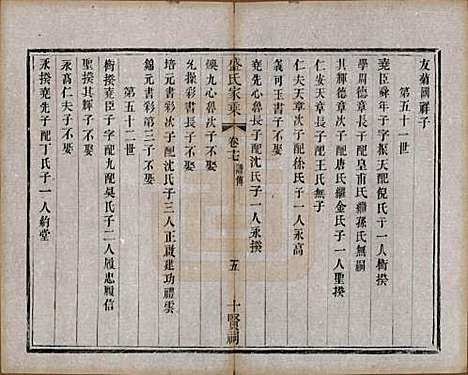 友菊國祥子
第五十一世
堯臣舜年子字振天配倪氏子一人衡揆
學周德章長子配皇甫氏繼孫氏無嗣
其輝德章次子配唐氏繼金氏子一人聖揆
仁安天章長子配王氏無子
仁夫天章次子配徐氏子一人永高
義可玉書子不娶
堯先心魯長子配沈氏子一人永揆
煥九心魯次子不娶
允操彩書長子不娶
培元書彩次子配沈氏子三人正啟建功禮雲
錦元書彩第三子不娶
第五十二世
衡揆堯臣子字九配吳氏子二人履忠履信
聖揆其輝子不娶
永高仁夫子不娶
永揆堯先子配丁氏子一人約堂
盛氏家乘
卷十七
譜傳
五
十賢祠